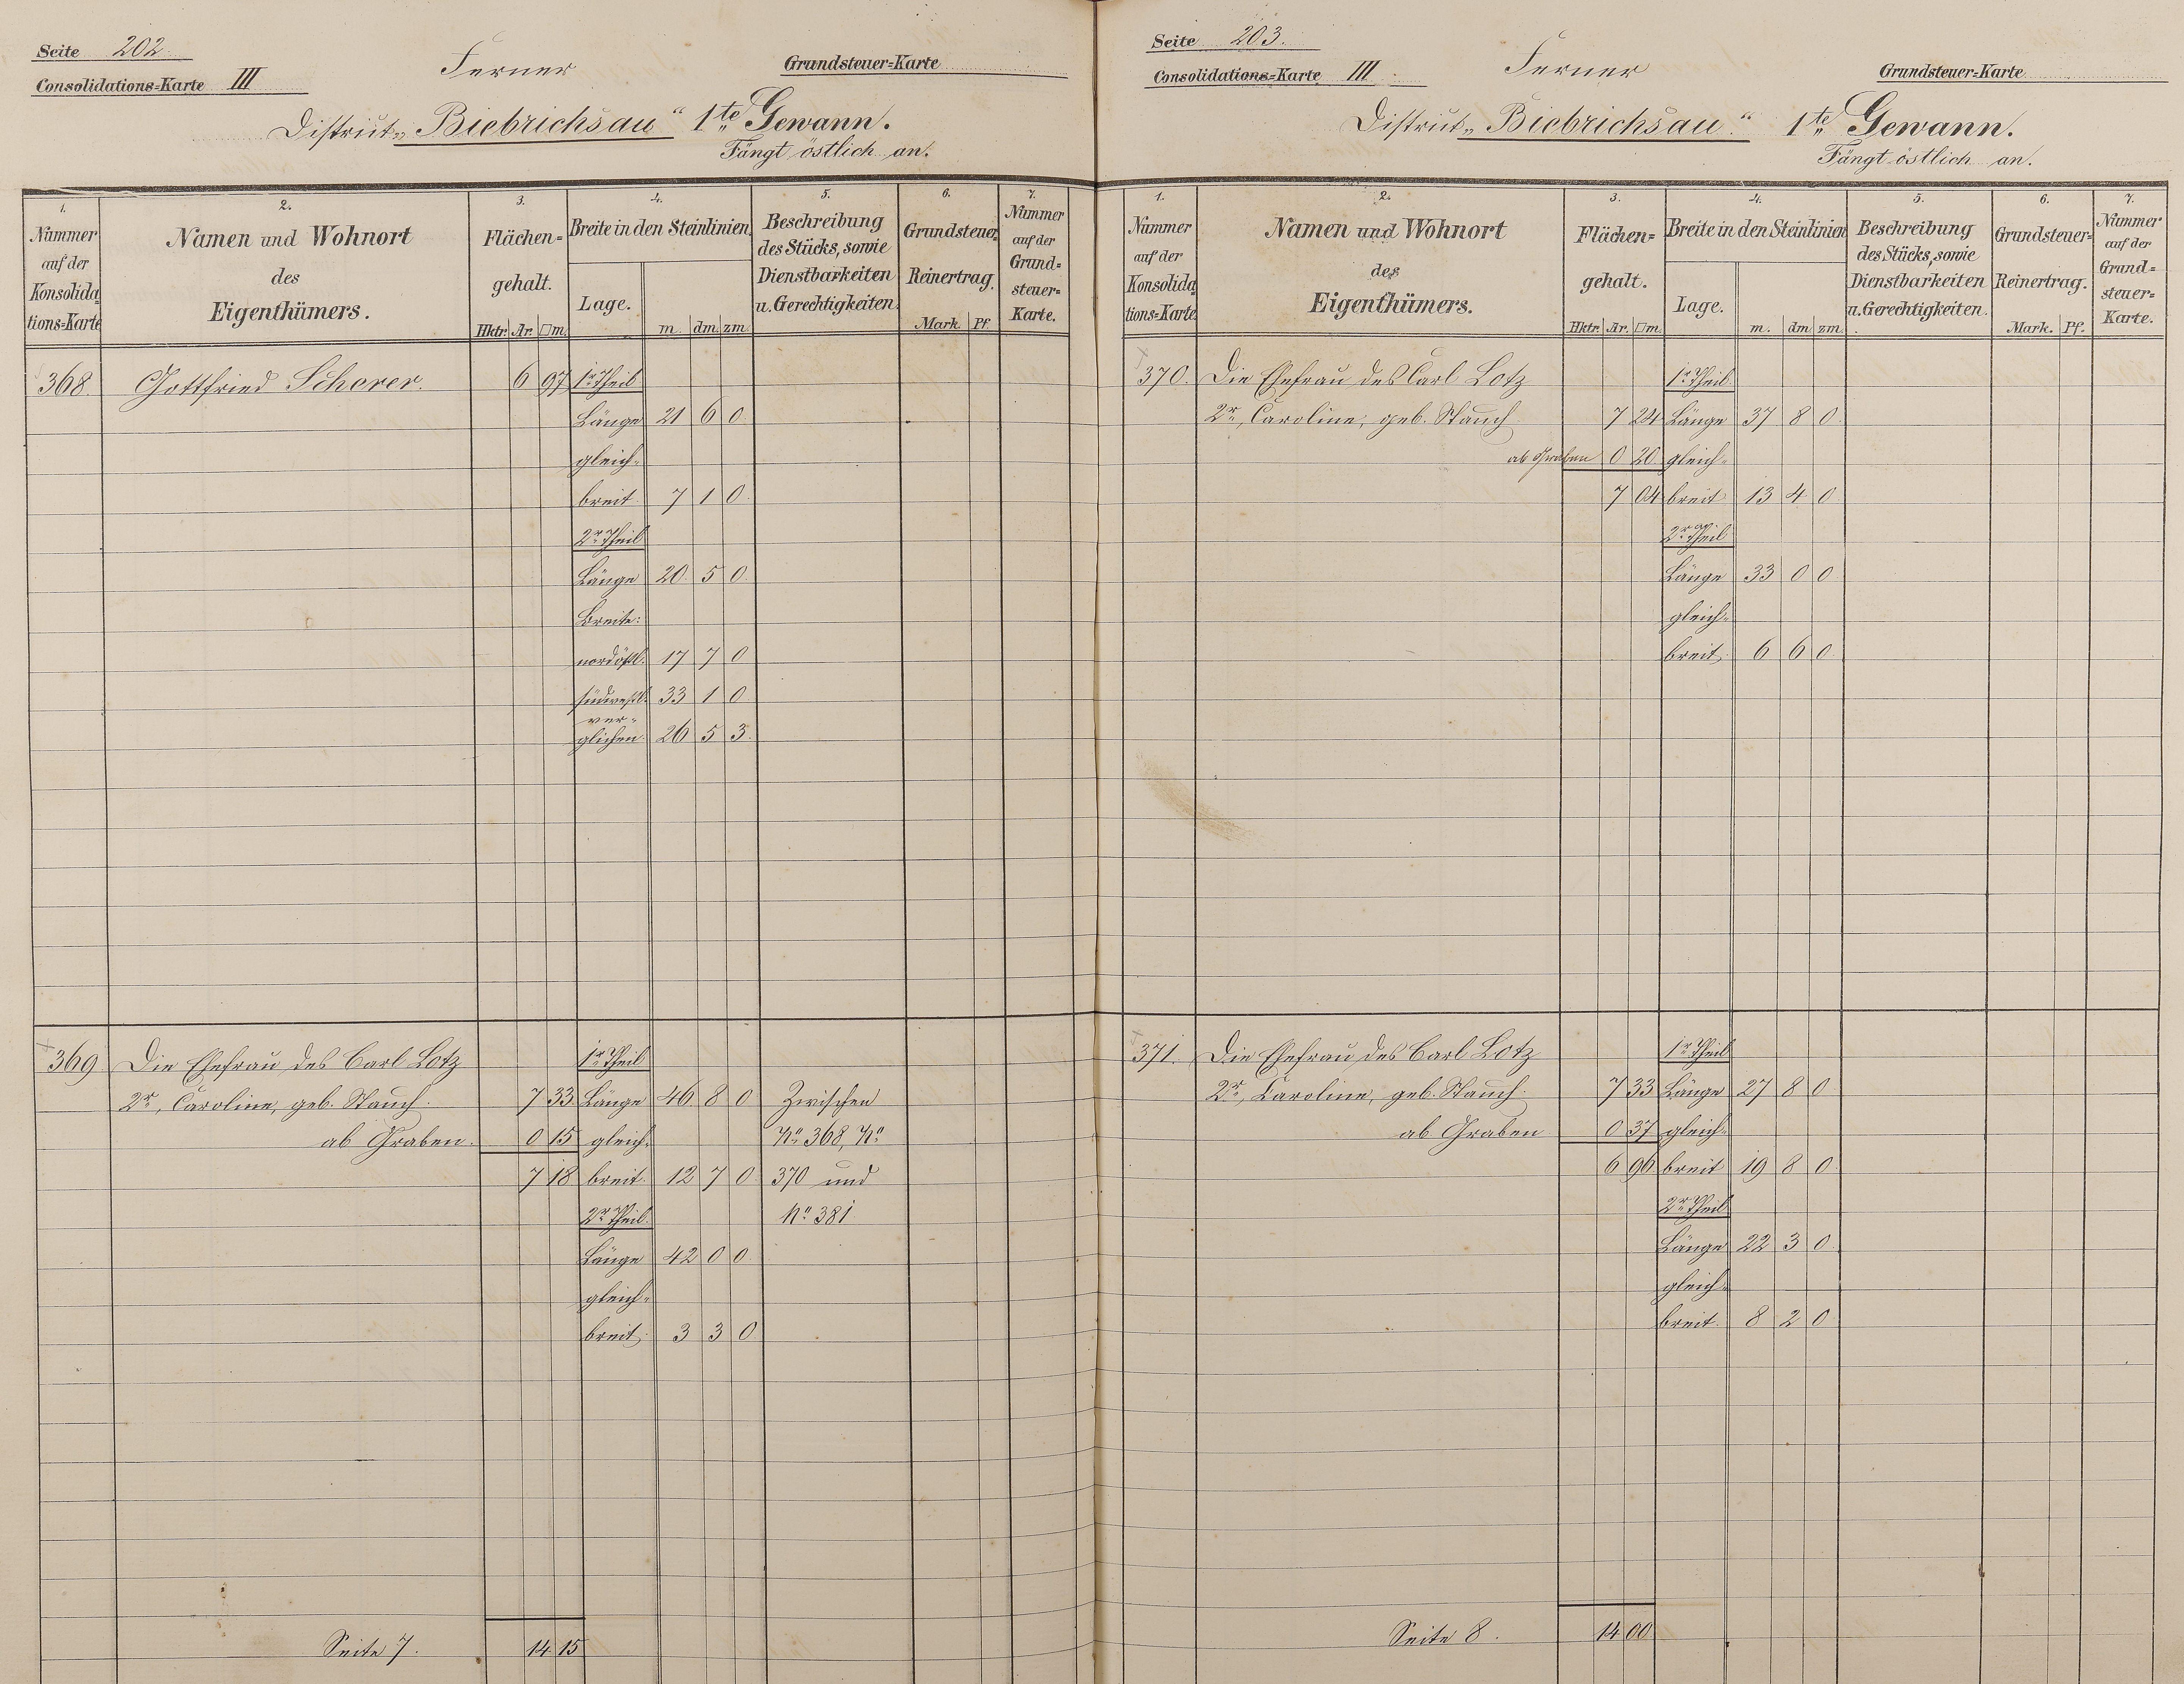 Seite 202.
Consolidations=Karte III
Ferner
Grundsteuer=Karte
District „Biebrichsau“ 1te Gewann.
Fängt östlich an.
1.
Nummer
auf der
Konsolida
tions=Karte
2.
Namen und Wohnort
des
Eigenthümers.
3.
Flächen=
gehalt.
Hktr. Ar. □m.
4.
Breite in den Steinlinien
Lage.
m. dm. zm.
5.
Beschreibung
des Stücks, sowie
Dienstbarkeiten
u. Gerechtigkeiten.
6.
Grundsteuer
Reinertrag.
Mark. Pf.
7.
Nummer
auf der
Grund=
steuer=
Karte.
368. Gottfried Scherer. 6 97 1r Theil
Länge 21 6 0
gleich=
breit 7 1 0
2r Theil
Länge 20 5 0
Breite:
nordöstl. 17 7 0
südwestl. 33 1 0
ver=
glichen 26 5 3
369 Die Ehefrau des Carl Lotz 1r Theil
2r, Caroline, geb. Stauch. 7 33 Länge 46 8 0 Zwischen
ab Graben. 0 15 gleich= No 368, No
7 18 breit 12 7 0 370 und
2r Theil No 381
Länge 42 0 0
gleich=
breit 3 3 0
Seite 7. 14 15
Seite 203.
Consolidations=Karte III
Ferner
Grundsteuer=Karte
District „Biebrichsau“ 1te Gewann.
Fängt östlich an.
1.
Nummer
auf der
Konsolida
tions=Karte
2.
Namen und Wohnort
des
Eigenthümers.
3.
Flächen=
gehalt.
Hktr. Ar. □m.
4.
Breite in den Steinlinien
Lage.
m. dm zm.
5.
Beschreibung
des Stücks, sowie
Dienstbarkeiten
u. Gerechtigkeiten.
6.
Grundsteuer=
Reinertrag.
Mark. Pf.
7.
Nummer
auf der
Grund=
steuer=
Karte.
370. Die Ehefrau des Carl Lotz 1r Theil
2r, Caroline, geb. Stauch 7 24 Länge 37 8 0
ab Graben 0 20 gleich=
7 04 breit 13 4 0
2r Theil
Länge 33 0 0
gleich=
breit 6 6 0
371. Die Ehefrau des Carl Lotz 1r Theil
2r, Caroline, geb. Stauch 7 33 Länge 27 8 0
ab Graben 0 37 gleich=
6 96 breit 19 8 0
2r Theil
Länge 22 3 0
gleich=
breit 8 2 0
Seite 8. 14 00